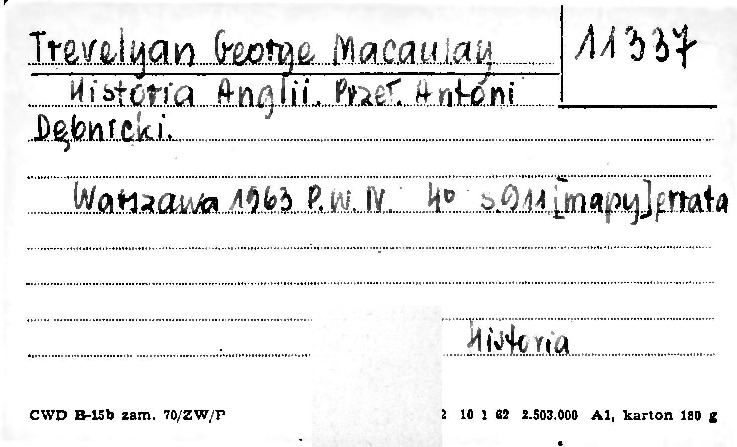 Trevelyan George Macaulay 11337
Historia Anglii. Przeł. Antoni
Dębnicki.
Warszawa 1963 P.W.N. 4° s. 911 [mapy] errata
Historia
CWD B-15b zam. 70/ZW/P 2 10 1 62 2.503.000 A1, karton 180 g